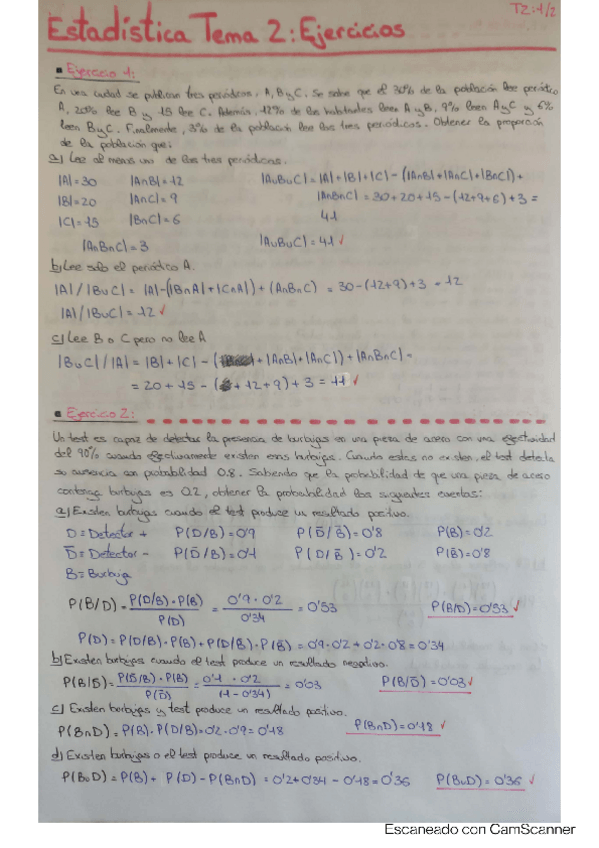 T2:1/2
Estadística Tema 2: Ejercicios
▪ Ejercicio 1:
En una ciudad se publican tres periódicos, A, B y C. Se sabe que el 30% de la población lee periódico
A, 20% lee B y 15 lee C. Además, 12% de los habitantes leen A y B, 9% leen A y C y 6%
leen B y C. Finalmente, 3% de la población lee los tres periódicos. Obtener la proporción
de la población que:
a) Lee al menos uno de los tres periódicos.
|A|=30 |A∩B|=12 |A∪B∪C|=|A|+|B|+|C|-(|A∩B|+|A∩C|+|B∩C|)+
|B|=20 |A∩C|=9 |A∩B∩C|=30+20+15-(12+9+6)+3=
|C|=15 |B∩C|=6 41
|A∩B∩C|=3 |A∪B∪C|=41 ✓
b) Lee solo el periódico A.
|A|/|B∪C|=|A|-(|B∩A|+|C∩A|)+(A∩B∩C)=30-(12+9)+3=12
|A|/|B∪C|=12 ✓
c) Lee B o C pero no lee A
|B∪C|/|A|=|B|+|C|-(+|A∩B|+|A∩C|)+|A∩B∩C|=
=20+15-(+12+9)+3=11 ✓
▪ Ejercicio 2:
Un test es capaz de detectar la presencia de burbujas en una pieza de acero con una efectividad
del 90% cuando efectivamente existen esas burbujas. Cuando estas no existen, el test detecta
su ausencia con probabilidad 0.8. Sabiendo que la probabilidad de que una pieza de acero
contenga burbujas es 0.2, obtener la probabilidad los siguientes eventos:
a) Existen burbujas cuando el test produce un resultado positivo.
D=Detector + P(D/B)=0'9 P(D̄/B̄)=0'8 P(B)=0'2
D̄=Detector - P(D̄/B)=0'1 P(D/B̄)=0'2 P(B̄)=0'8
B=Burbuja
P(B/D)=P(D/B)·P(B)/P(D)=0'9·0'2/0'34=0'53 P(B/D)=0'53 ✓
P(D)=P(D/B)·P(B)+P(D/B̄)·P(B̄)=0'9·0'2+0'2·0'8=0'34
b) Existen burbujas cuando el test produce un resultado negativo.
P(B/D̄)=P(D̄/B)·P(B)/P(D̄)=0'1·0'2/(1-0'34)=0'03 P(B/D̄)=0'03 ✓
c) Existen burbujas y test produce un resultado positivo.
P(B∩D)=P(B)·P(D/B)=0'2·0'9=0'18 P(B∩D)=0'18 ✓
d) Existen burbujas o el test produce un resultado positivo.
P(B∪D)=P(B)+P(D)-P(B∩D)=0'2+0'34-0'18=0'36 P(B∪D)=0'36 ✓
Escaneado con CamScanner